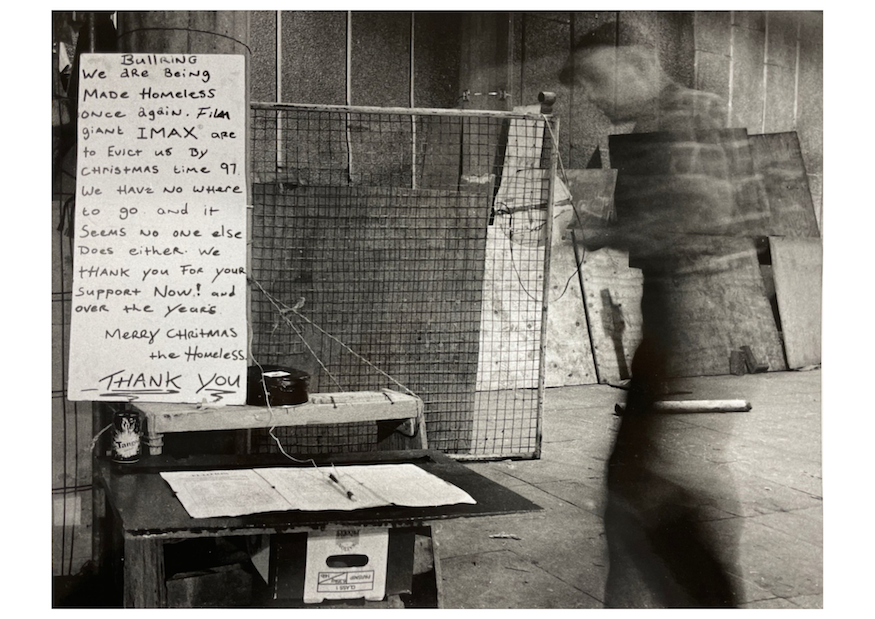 BullRING
We are Being
MADE Homeless
once again. Film
giant IMAX are
to Evict us By
CHRISTMAS time 97.
We HAVE NO WHERE
to go. and it
Seems no one else
Does either. We
tHANK you For your
Support Now! and
over the years.
Merry CHRITMAS
the Homeless.
THANK YOU
Tango
CLASS 1